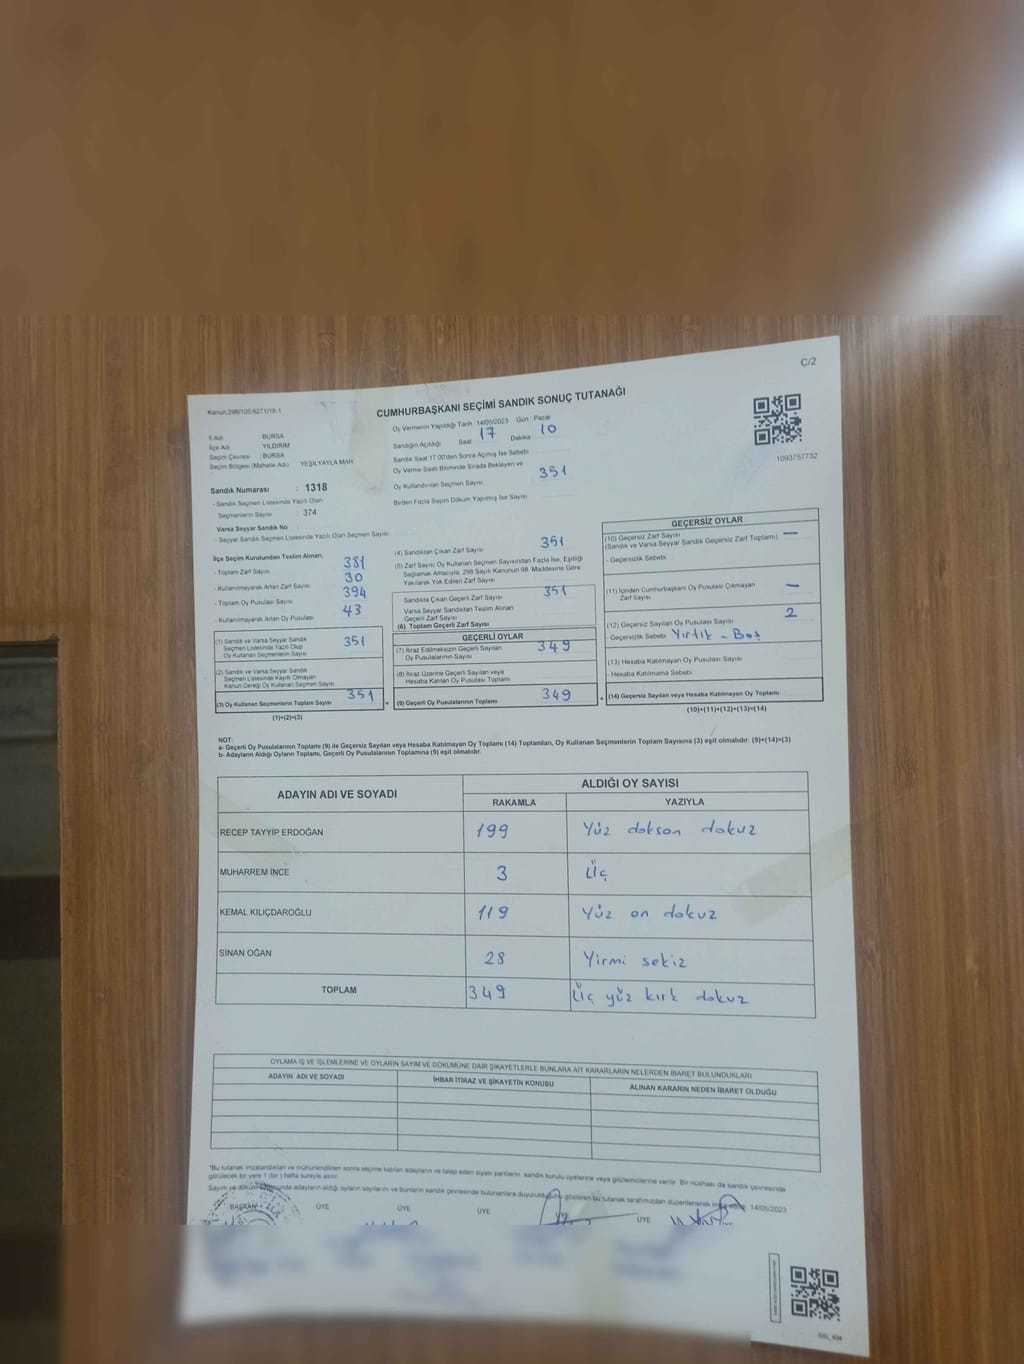 C/2
Kanun:298/105-6271/18-1
CUMHURBAŞKANI SEÇİMİ SANDIK SONUÇ TUTANAĞI
1093757732
İl Adı : BURSA
İlçe Adı : YILDIRIM
Seçim Çevresi : BURSA
Seçim Bölgesi (Mahalle Adı) YEŞİLYAYLA MAH.
Sandık Numarası : 1318
- Sandık Seçmen Listesinde Yazılı Olan
Seçmenlerin Sayısı : 374
Varsa Seyyar Sandık No
- Seyyar Sandık Seçmen Listesinde Yazılı Olan Seçmen Sayısı
Oy Vermenin Yapıldığı Tarih :14/05/2023 Gün : Pazar
Sandığın Açıldığı Saat 17 Dakika 10
Sandık Saat 17.00'den Sonra Açılmış İse Sebebi
Oy Verme Saati Bitiminde Sırada Bekleyen ve
Oy Kullandırılan Seçmen Sayısı 351
Birden Fazla Sayım Döküm Yapılmış İse Sayısı
İlçe Seçim Kurulundan Teslim Alınan;
- Toplam Zarf Sayısı 381
- Kullanılmayarak Artan Zarf Sayısı 30
- Toplam Oy Pusulası Sayısı 394
- Kullanılmayarak Artan Oy Pusulası 43
(1) Sandık ve Varsa Seyyar Sandık
Seçmen Listesinde Yazılı Olup
Oy Kullanan Seçmenlerin Sayısı 351
(2) Sandık ve Varsa Seyyar Sandık
Seçmen Listesinde Kayıtlı Olmayan
Kanun Gereği Oy Kullanan Seçmen Sayısı
(3) Oy Kullanan Seçmenlerin Toplam Sayısı 351
(1)+(2)=(3)
(4) Sandıktan Çıkan Zarf Sayısı 351
(5) Zarf Sayısı Oy Kullanan Seçmen Sayısından Fazla İse, Eşitliği
Sağlamak Amacıyla, 298 Sayılı Kanunun 98. Maddesine Göre
Yakılarak Yok Edilen Zarf Sayısı
Sandıkta Çıkan Geçerli Zarf Sayısı 351
Varsa Seyyar Sandıktan Teslim Alınan
Geçerli Zarf Sayısı
(6) Toplam Geçerli Zarf Sayısı
GEÇERLİ OYLAR
(7) İtiraz Edilmeksizin Geçerli Sayılan
Oy Pusulalarının Sayısı 349
(8) İtiraz Üzerine Geçerli Sayılan veya
Hesaba Katılan Oy Pusulası Toplamı
(9) Geçerli Oy Pusulalarının Toplamı 349
GEÇERSİZ OYLAR
(10) Geçersiz Zarf Sayısı
(Sandık ve Varsa Seyyar Sandık Geçersiz Zarf Toplamı) —
- Geçersizlik Sebebi
(11) İçinden Cumhurbaşkanı Oy Pusulası Çıkmayan
Zarf Sayısı —
(12) Geçersiz Sayılan Oy Pusulası Sayısı 2
- Geçersizlik Sebebi Yırtık - Boş
(13) Hesaba Katılmayan Oy Pusulası Sayısı
- Hesaba Katılmama Sebebi
(14) Geçersiz Sayılan veya Hesaba Katılmayan Oy Toplamı
(10)+(11)+(12)+(13)=(14)
NOT:
a- Geçerli Oy Pusulalarının Toplamı (9) ile Geçersiz Sayılan veya Hesaba Katılmayan Oy Toplamı (14) Toplamları, Oy Kullanan Seçmenlerin Toplam Sayısına (3) eşit olmalıdır. (9)+(14)=(3)
b- Adayların Aldığı Oyların Toplamı, Geçerli Oy Pusulalarının Toplamına (9) eşit olmalıdır.
ADAYIN ADI VE SOYADI
ALDIĞI OY SAYISI
RAKAMLA YAZIYLA
RECEP TAYYİP ERDOĞAN 199 Yüz doksan dokuz
MUHARREM İNCE 3 Üç
KEMAL KILIÇDAROĞLU 119 Yüz on dokuz
SİNAN OĞAN 28 Yirmi sekiz
TOPLAM 349 Üç yüz kırk dokuz
OYLAMA İŞ VE İŞLEMLERİNE VE OYLARIN SAYIM VE DÖKÜMÜNE DAİR ŞİKAYETLERLE BUNLARA AİT KARARLARIN NELERDEN İBARET BULUNDUKLARI
ADAYIN ADI VE SOYADI İHBAR İTİRAZ VE ŞİKAYETİN KONUSU ALINAN KARARIN NEDEN İBARET OLDUĞU
*Bu tutanak imzalandıktan ve mühürlendikten sonra seçime katılan adayların ve talep eden siyasi partilerin sandık kurulu üyelerine veya gözlemcilerine verilir. Bir nüshası da sandık çevresinde
görülecek bir yere 1 (bir) hafta süreyle asılır.
Sayım ve döküm sonunda adayların aldığı oyların sayılarını ve bunların sandık çevresinde bulunanlara duyurulduğunu gösteren bu tutanak tarafımızdan düzenlenerek 14/05/2023
BAŞKAN ÜYE ÜYE ÜYE ÜYE